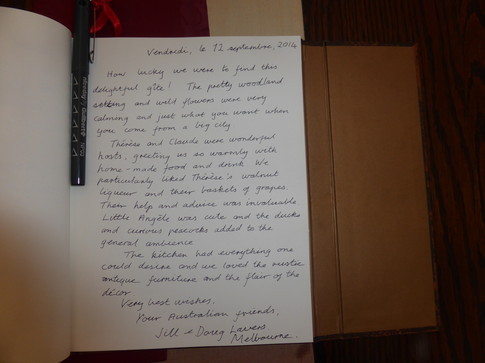 Vendredi, le 12 septembre, 2014
How lucky we were to find this
delightful gîte! The pretty woodland
setting and wild flowers were very
calming and just what you want when
you come from a big city
Thérèse and Claude were wonderful
hosts, greeting us so warmly with
home-made food and drink. We
particularly liked Thérèse's walnut
liqueur and their baskets of grapes.
Their help and advice was invaluable
Little Angèle was cute and the ducks
and curious peacocks added to the
general ambience
The kitchen had everything one
could desire and we loved the rustic
antique furniture and the flair of the
décor
Very best wishes,
Your Australian friends,
Jill & Doug Lavers,
Melbourne.